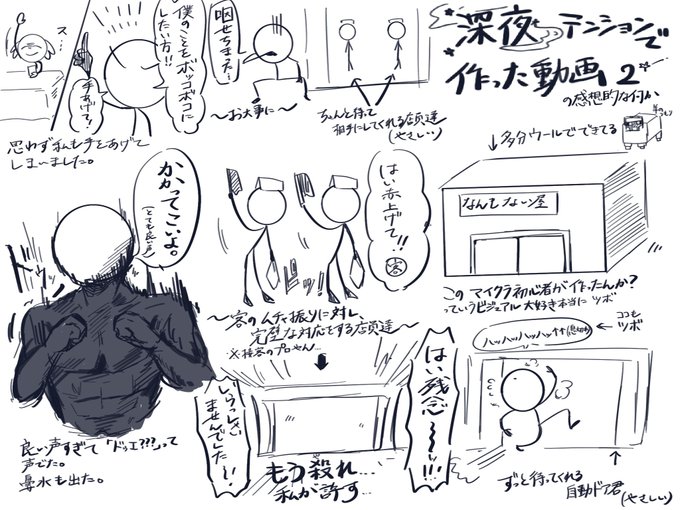 深夜テンションで
作った動画2
の感想的な何か
↓多分ウールでできてる
なんもない屋
このマイクラ初心者が作ったんか?
っていうビジュアル大好き本当にツボ
ココも
ツボ
ハッハッハッハッ
ずっと待ってくれる
自動ドア君
(やさしい)
はい残念〜〜!!!
ちゃんと待って
相手にしてくれる店員達
(やさしい)
咽せちまえ…
〜お大事に〜
僕のことをボッコボコに
したい方!!
手あげて!
ス…
思わず私も手をあげて
しまいました。
はい赤上げて!!
客
〜客のムチャ振りに対し、
完璧な対応をする店員達〜
※接客のプロやん…
いらっしゃい
ませんでした〜!
もう殺れ…
私が許す…
かかってこいよ。
(とても良い声)
ドゥン
良い声すぎて「ドゥエ???」って
声でた。
鼻水も出た。